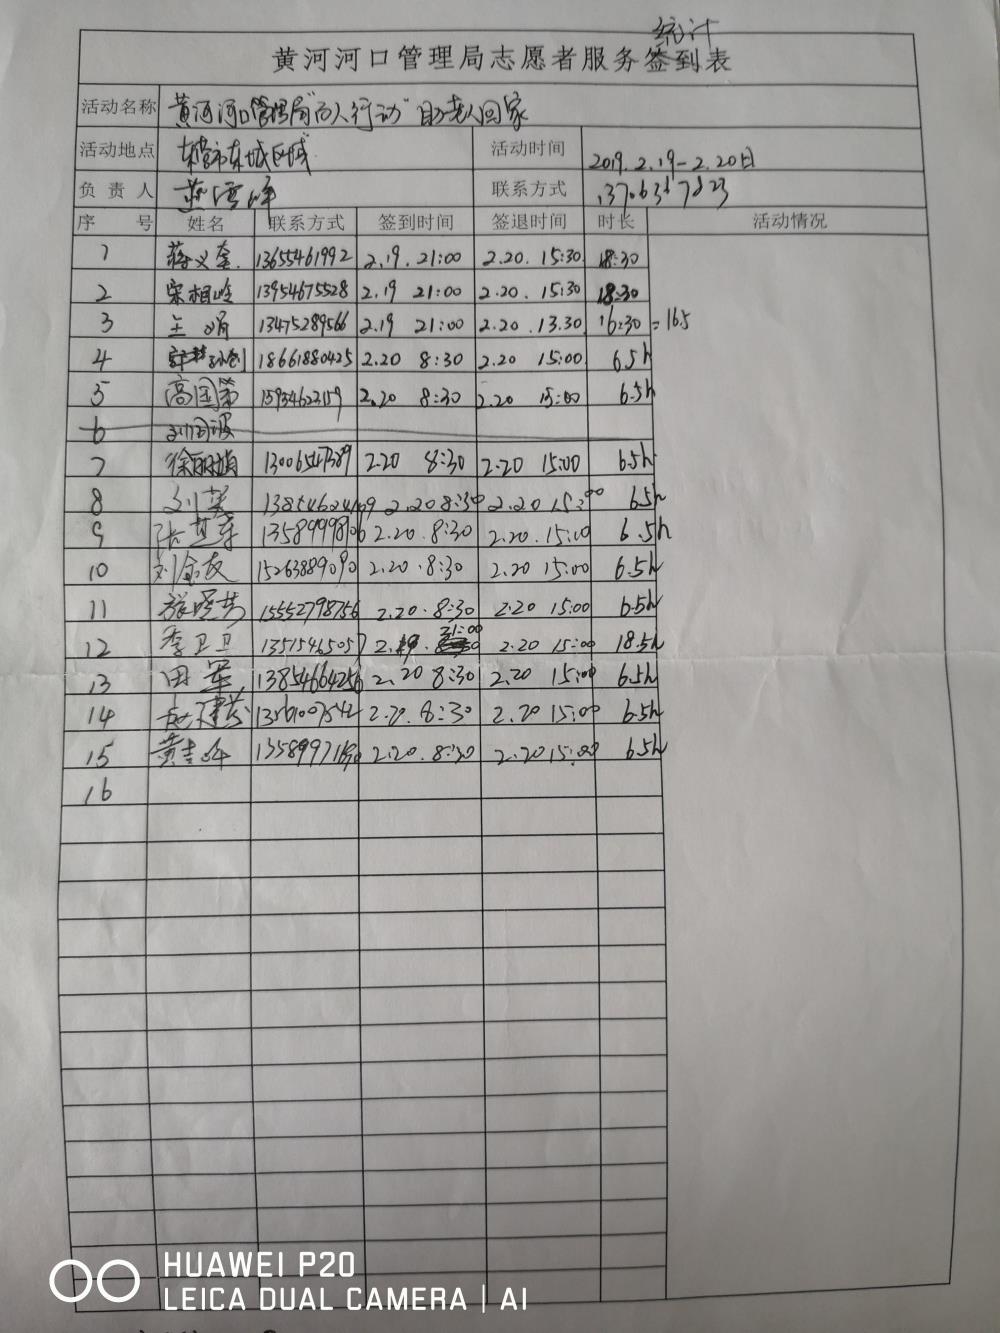 统计
黄河河口管理局志愿者服务签到表
活动名称 黄河河口管理局"百人行动"助老人回家
活动地点 东营市东城区域 活动时间 2019.2.19-2.20日
负责人 联系方式
序号 姓名 联系方式 签到时间 签退时间 时长 活动情况
1 蒋义奎 13655461992 2.19. 21:00 2.20. 15:30 18:30
2 宋相岭 13954675528 2.19 21:00 2.20. 15:30 18:30
3 王娟 13475289566 2.19 21:00 2.20.13.30 16:30=16.5
4 18661880425 2.20 8:30 2.20 15:00 6.5h
5 高国第 15934623159 2.20 8:30 2.20 15:00 6.5h
6 刘国波
7 徐丽娟 13006547389 2.20 8:30 2.20 15:00 6.5h
8 刘英 2.20 8:30 2.20 15:00 6.5h
9 2.20.8:30 2.20.15:00 6.5h
10 刘金友 15263889090 2.20.8:30 2.20 15:00 6.5h
11 15552798756 2.20.8:30 2.20 15:00 6.5h
12 李卫卫 13515465057 2.19. 21:00 2.20 15:00 18.5h
13 田军 13854664256 2.20 8:30 2.20 15:00 6.5h
14 13561007542 2.20.8:30 2.20 15:00 6.5h
15 2.20.8:30 2.20 15:00 6.5h
16
HUAWEI P20
LEICA DUAL CAMERA | AI